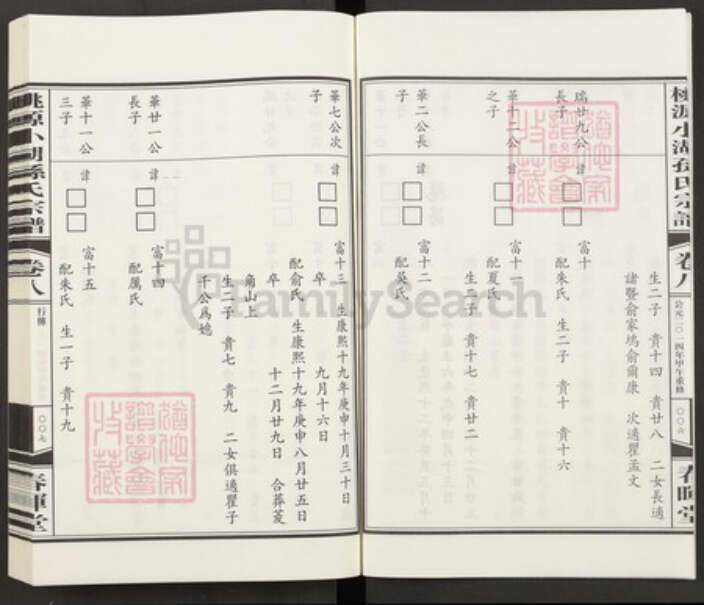 桃源小湖孫氏宗譜
卷八
公元二〇一四年甲午重修
〇〇六
春暉堂
生二子 貴十四 貴廿八 二女長適
諸暨俞家塢俞爾康 次適瞿孟文
瑞廿九公
長子
諱□□
富十
配朱氏 生二子 貴十 貴十六
華十二公
之子
諱□□
富十一
配夏氏
生二子 貴十七 貴廿二
華二公長
子
諱□□
富十二
配吳氏
華七公次
子
諱□□
富十三 生康熙十九年庚申十月三十日
卒 九月十六日
配俞氏 生康熙十九年庚申八月廿五日
卒 十二月廿九日 合葬芰
角山上
生二子 貴七 貴九 二女俱適瞿子
千公爲媳
華廿一公
長子
諱□□
富十四
配厲氏
華十一公
三子
諱□□
富十五
配朱氏 生一子 貴十九
桃源小湖孫氏宗譜
卷八
行傳
〇〇七
春暉堂
猶他家譜學會收藏
猶他家譜學會收藏
FamilySearch